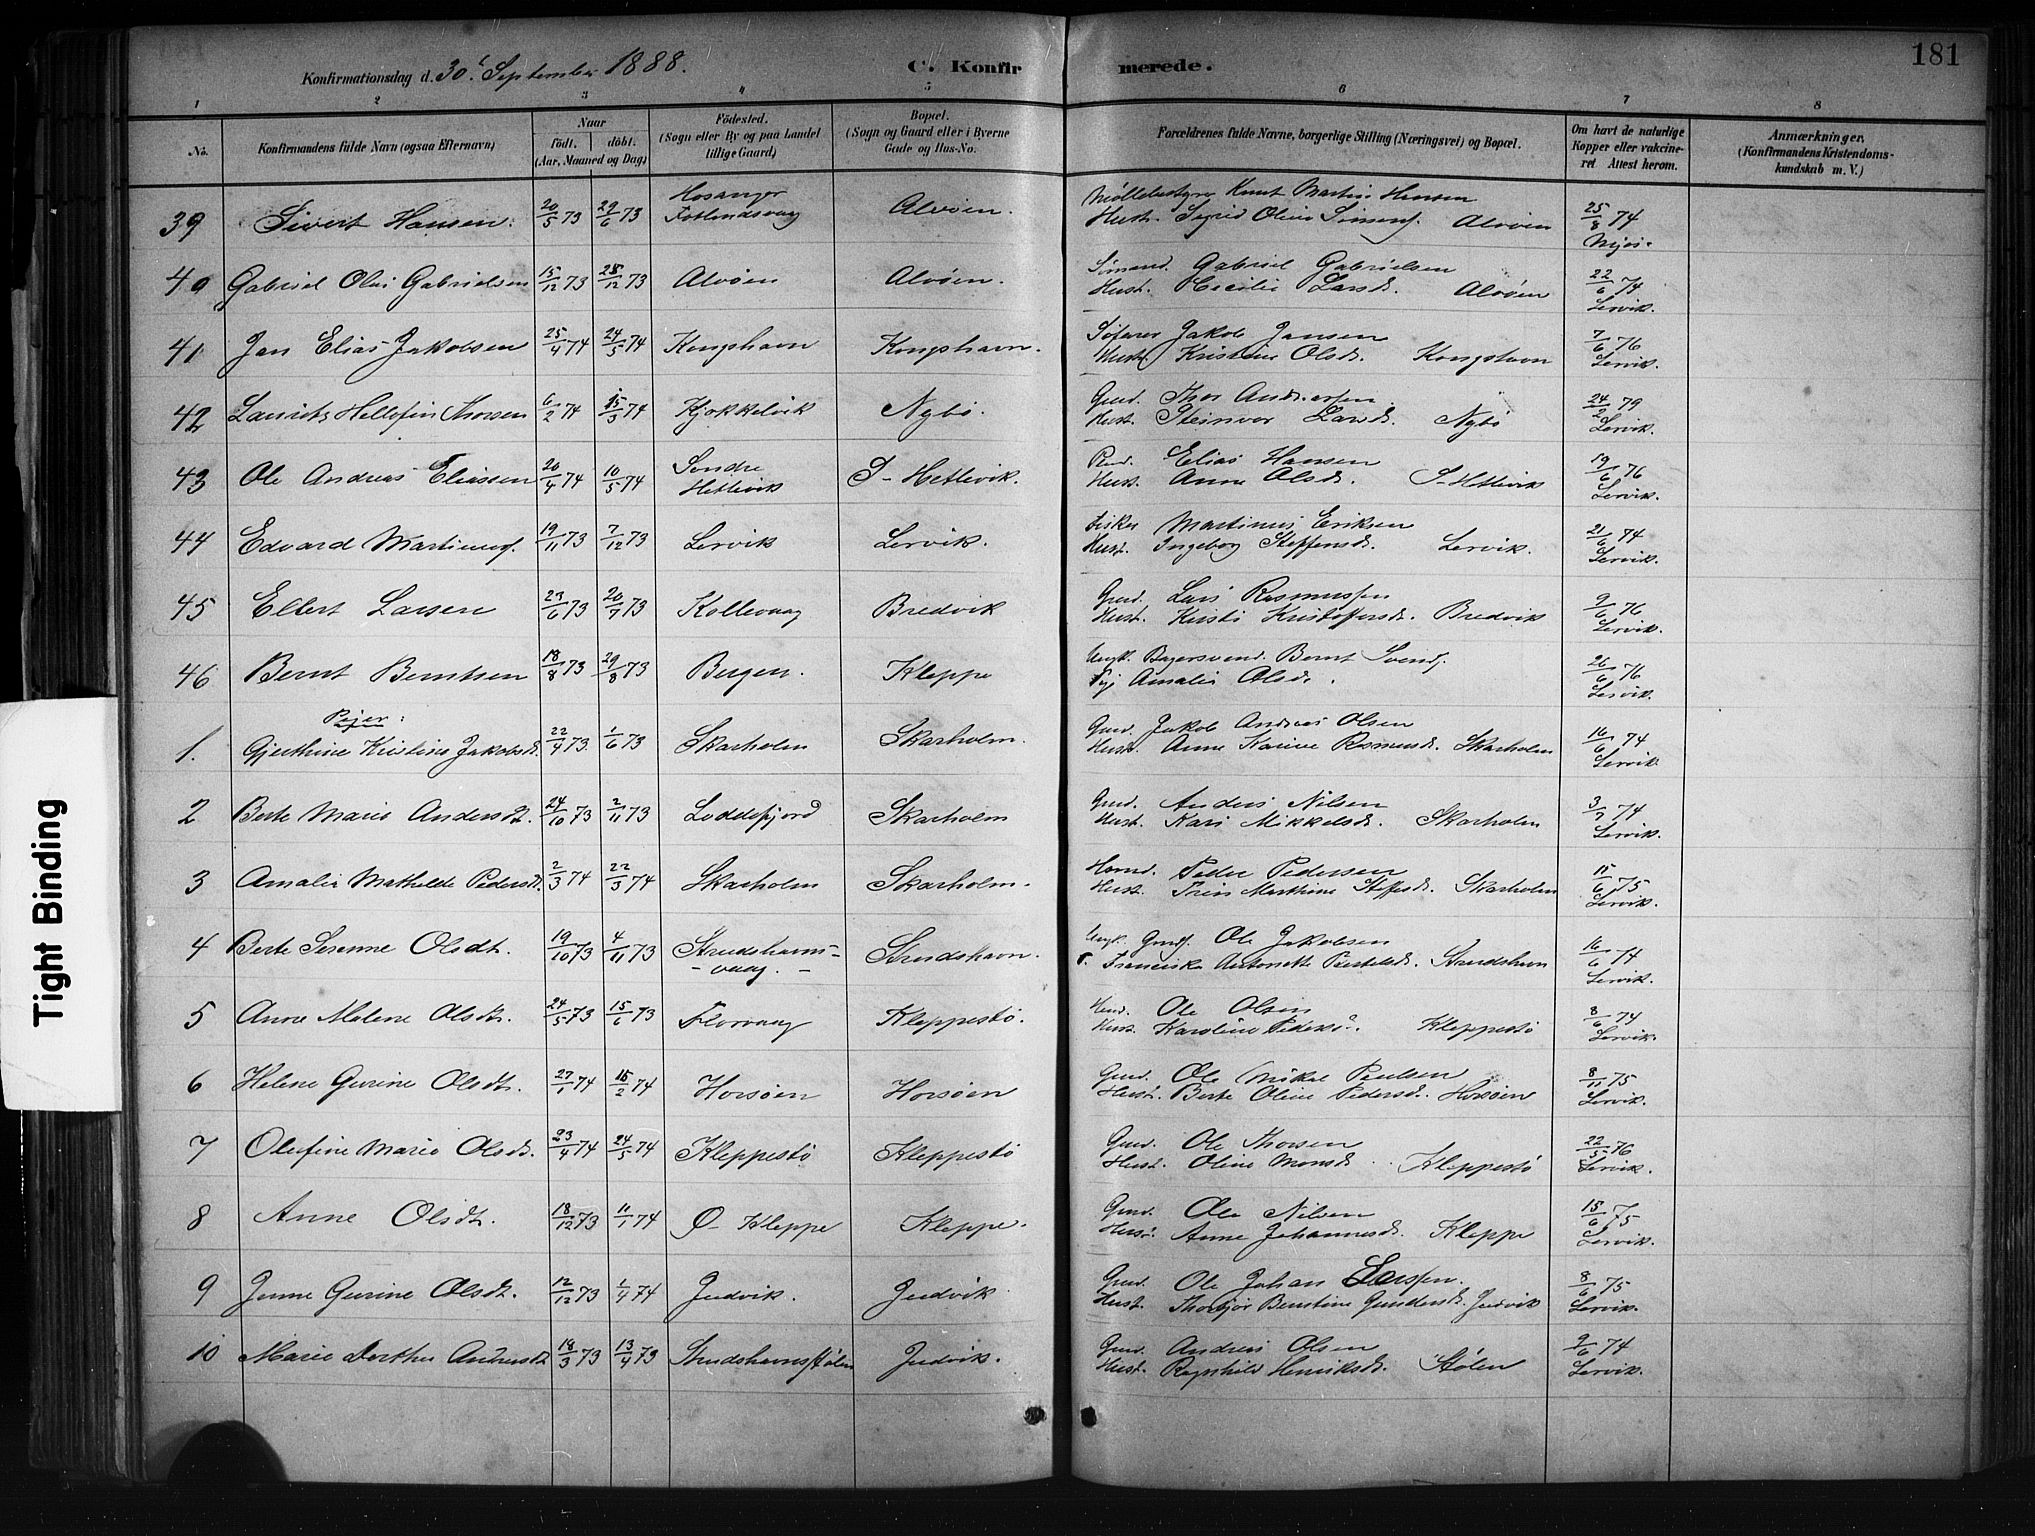 181
Konfirmationsdag d. 30t September 1888.
C. Konfirmerede.
1 2 3 4 5 6 7 8
No. Konfirmandens fulde Navn (ogsaa Efternavn) Naar født. døbt. (Aar, Maaned og Dag) Fødested. (Sogn eller By og paa Landet tillige Gaard) Bopæl. (Sogn og Gaard eller i Byerne Gade og Hus-No. Forældrenes fulde Navne, borgerlige Stilling (Næringsvei) og Bopæl. Om havt de naturlige Kopper eller vaccineret Attest herom. Anmærkninger. (Konfirmandens Kristendomskundskab m. V.)
39 Sivert Hansen. 20/5 73 29/6 73 Hosanger Fotlandsvaag Alvøen. Møllebestyrer Knut Martin Hansen
Hust. Sigrid Oline Simens. Alvøen 25/8 74
40 Gabriel Olai Gabrielsen 15/12 73 28/12 73 Alvøen Alvøen. Sømand. Gabriel Gabrielsen
Hust. Cecilie Larsd. Alvøen 22/6 74 Lervik.
41 Jan Elias Jakobsen 25/4 74 24/5 74 Kongshavn Kongshavn. Søfarer Jakob Jansen
Hust. Kristine Olsd. Kongshavn 7/6 76 Lervik.
42 Laurits Hellesen Thorsen 6/2 74 15/3 74 Kjøkkelvik Nybø. Gmd. Thor Andersen
Hust. Steinvor Larsd. Nybø 24/2 79 Lervik.
43 Ole Andreas Eliassen 20/4 74 10/5 74 Søndre Hetlevik S- Hetlevik. Elias Hansen
Hust. Anne Olsd. S. Hetlevik 19/6 76 Lervik.
44 Edvard Martinus. 19/11 73 7/12 73 Lervik Lervik. Fisker Martinus Eriksen
Hust. Ingeborg Steffensd. Lervik. 21/6 74 Lervik.
45 Ellert Larsen 23/6 73 20/7 73 Kollevaag Bredvik Gmd. Lars Rasmussen
Hust. Kristi Kristoffersd. Bredvik 9/6 76 Lervik.
46 Bernt Berntsen 18/8 73 29/8 73 Bergen. Kleppe Ungk. Bagersvend Bernt Svend.
Pig. Amalie Olsd. 26/6 76 Lervik.
Piger:
1. Gjerthine Kristine Jakobsd. 22/4 73. 1/6 73 Skarholm Skarholm. Gmd. Jakob Andreas Olsen
Hust. Anne Karine Rasmusd. Skarholm 16/6 74 Lervik
2 Berte Marie Andersdt. 24/10 73 2/11 73 Loddefjord Skarholm Gmd. Anders Nilsen
Hust. Kari Mikkelsd. Skarholm 3/7 74 Lervik.
3 Amalie Mathilde Pedersdt. 2/3 74 22/3 74 Skarholm Skarholm. Peder Pedersen
Hust. Trine Marthine Steffsd. Skarholm 11/6 75 Lervik.
4 Berte Serenne Olsdt. 19/10 73 4/11 73 Strudshavnsvaag. Strudshavn. Ungk. Ole Jakobsen
Franciska Antonette Bertelsd. Strudshavn 16/6 74 Lervik.
5 Anne Malene Olsdt. 24/5 73 15/6 73 Florvaag Kleppestø. Ole Olsen
Hust. Karoline Peders. Kleppestø 8/6 74 Lervik.
6 Helene Gurine Olsdt. 27/1 74 15/2 74 Horsøen Horsøen Gmd. Ole Mikal Paulsen
Hust. Berte Oline Pedersd. Horsøen 8/11 75 Lervik.
7 Olefine Marie Olsd. 23/4 74 24/5 74 Kleppestø Kleppestø Gmd. Ole Thorsen
Hust. Oline Monsd. Kleppestø 22/5 76 Lervik.
8 Anne Olsdt. 18/12 73 11/1 74 Ø- Kleppe Kleppe. Gmd. Ole Nilsen
Hust. Anne Johannesd. Kleppe 15/6 75 Lervik.
9 Jenne Gurine Olsdt. 12/12 73 1/4 74 Judvik. Judvik. Gmd. Ole Johan Larssen.
Hust. Thorbjør Berntine Gundersd. Judvik 8/6 75 Lervik.
10 Marie Dorthe Andersdt. 18/3 73 13/4 73 Strudshavnsstølen Judvik. Gmd. Andreas Olsen
Hust. Ragnhild Henriksd. Stølen 9/6 74 Lervik.
Tight Binding